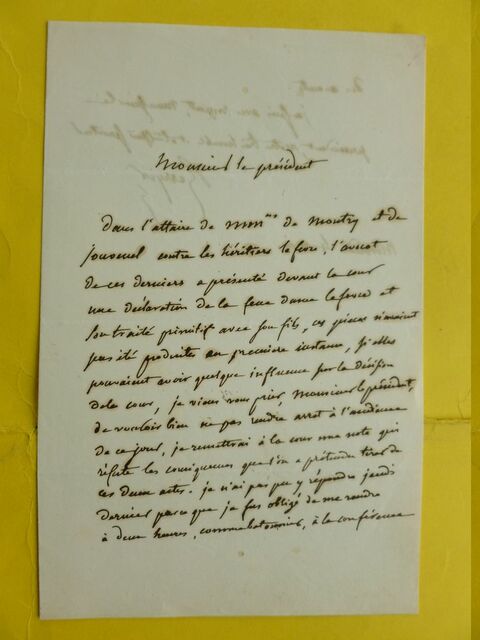 Monsieur le président
Dans l'affaire de MMmes de Montry et de
jouvenel contre les héritiers lefevre, l'avocat
de ces derniers a présenté devant la cour
une déclaration de la feue dame lefevre et
son traité primitif avec son fils, ces pièces n'avaient
pas été produites en premiere instance, si elles
pouvaient avoir quelque influence sur la décision
de la cour, je viens vous prier, Monsieur le président,
de vouloir bien ne pas rendre arrêt à l'audience
de ce jour, je remettrai à la cour une note qui
réfute les conséquences que l'on a prétendu tirer de
ces deux actes. je n'ai pas pu y répondre jeudi
dernier parce que je fus obligé de me rendre
à deux heures, comme batonnier, à la conférence